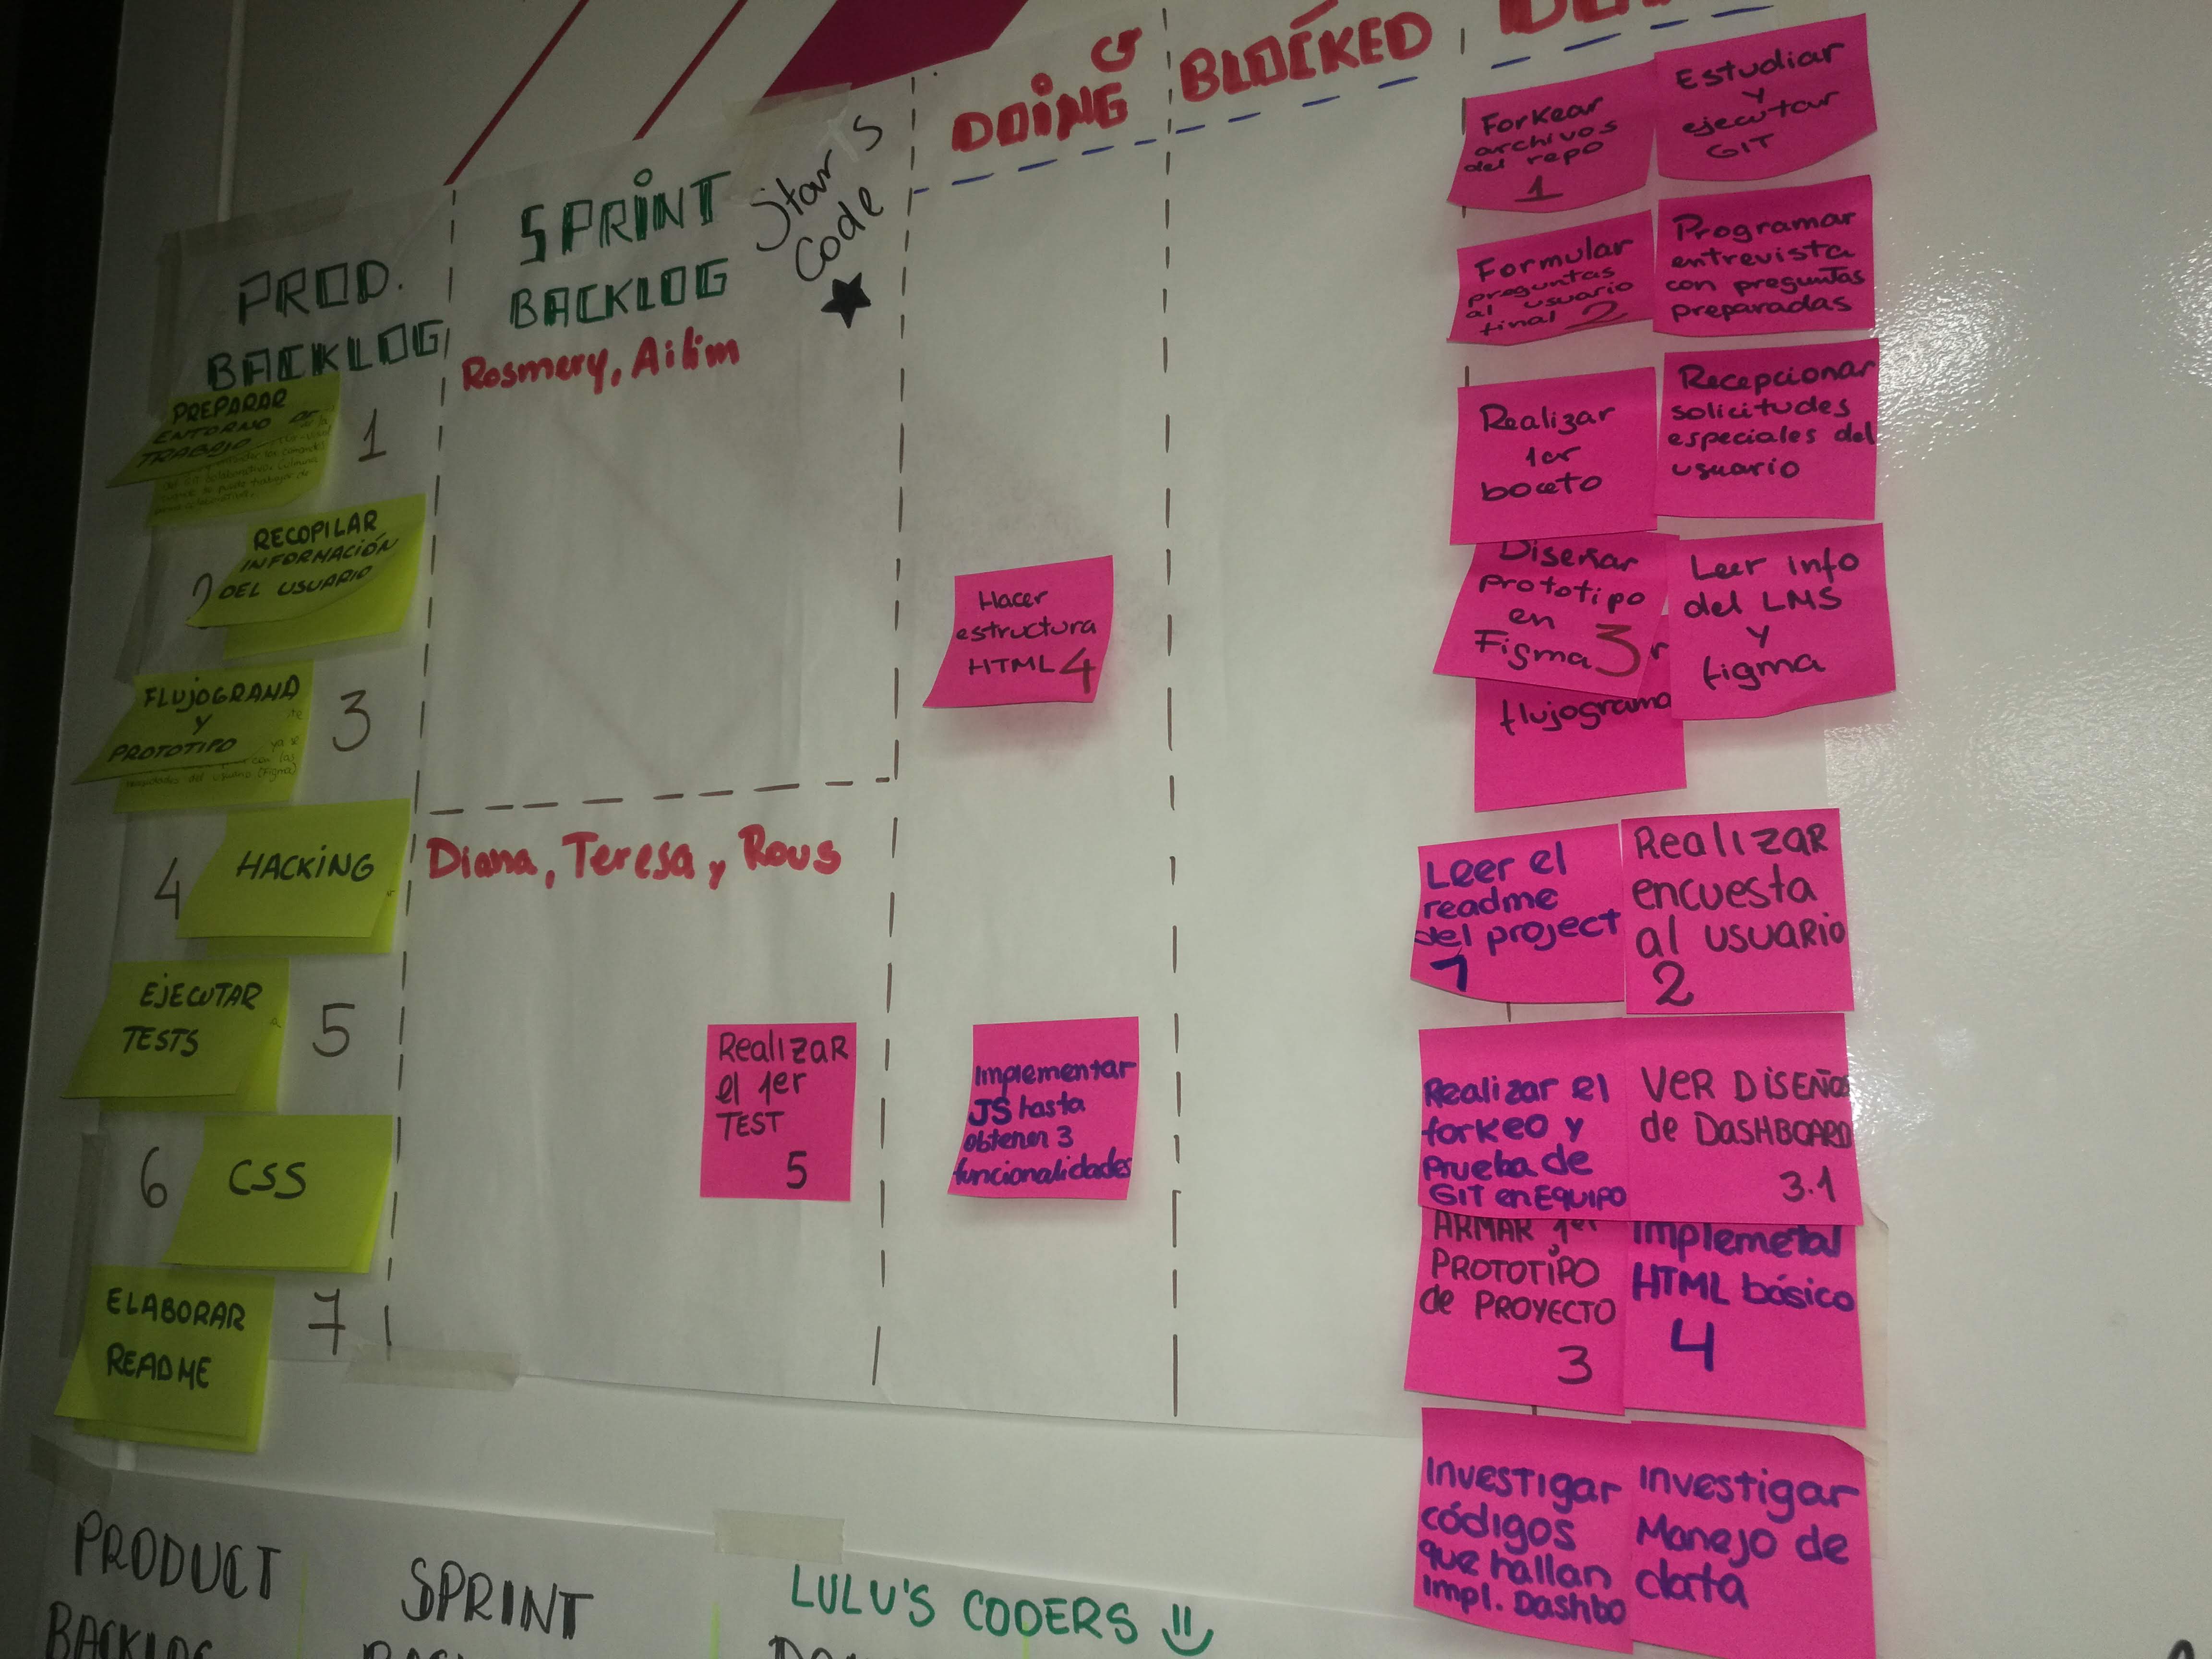 PROD.
BACKLOG
SPRINT
BACKLOG
Star's
Code
DOING
BLOCKED
Rosmery, Ailim
PREPARAR
ENTORNO DE
TRABAJO
1
RECOPILAR
INFORMACIÓN
DEL USUARIO
2
FLUJOGRAMA
Y
PROTOTIPO
3
HACKING
4
EJECUTAR
TESTS
5
CSS
6
ELABORAR
README
7
Hacer
estructura
HTML 4
Diana, Teresa y Rous
Realizar
el 1er
TEST
5
Implementar
JS hasta
obtener 3
funcionalidades
Forkear
archivos
del repo
1
Estudiar
y
ejecutar
GIT
Formular
preguntas
al usuario
final 2
Programar
entrevista
con preguntas
preparadas
Realizar
1er
boceto
Recepcionar
solicitudes
especiales del
usuario
Diseñar
prototipo
en
Figma 3
Leer info
del LMS
y
figma
flujograma
Leer el
readme
del project
1
Realizar
encuesta
al usuario
2
Realizar el
forkeo y
prueba de
GIT en EQUIPO
VER DISEÑOS
de DASHBOARD
3.1
ARMAR 1er
PROTOTIPO
de PROYECTO
3
Implemetar
HTML básico
4
Investigar
códigos
que hallan
Impl. Dashbo
Investigar
Manejo de
data
PRODUCT
BACKLOG
SPRINT
LULU'S CODERS